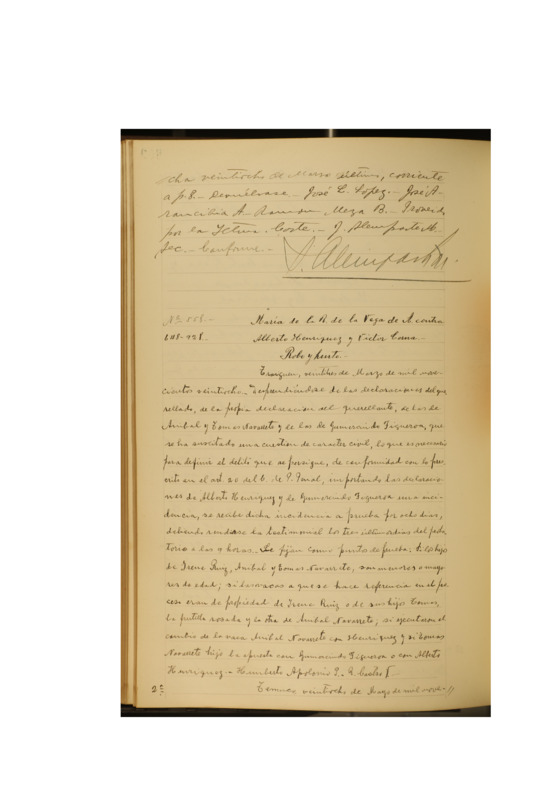 cha veintiocho de Marzo último, corriente
a fs. 8. Devuélvase. José L. López. José A.
A. Meza B. Proveído
por la Iltma. Corte. J. Alemparte A.
Sec. Conforme.
J. Alemparte
María de la R. de la Vega de A contra
Alberto Henriquez y Victor Coma
Robo y hurto.
Traiguen, veintitres de Marzo de mil nove-
cientos veintiocho. desprendiéndose de las declaraciones del que
rellado, de la propia declaracion del querellante, de las de
Anibal y Tomas Navarrete y de las de Gumercindo Figueroa, que
se ha suscitado una cuestion de caracter civil, lo que es necesario
para definir el delito que se persigue, de conformidad con lo pres
crito en el art. 20 del C. de P. Penal, importando las declaracio-
nes de Alberto Henriquez y de Gumercindo Figueroa una inci-
dencia, se recibe dicha incidencia a prueba por ocho dias,
debiendo rendirse la testimonial los tres ultimos dias del proba
torio a las 4 horas. Se fijan como puntos de prueba: si los hijos
de Irene Ruiz, Anibal y Tomas Navarrete, son menores o mayo
res de edad; si las vacas a que se hace referencia en el pro
ceso eran de propiedad de Irene Ruiz o de sus hijos Tomas,
la partida rosada y la otra de Anibal Navarrete; si ejecutaron el
cambio de la vaca Anibal Navarrete con Henriquez y si Tomas
Navarrete hizo la apuesta con Gumercindo Figueroa o con Alberto
Henriquez. Humberto Apolonio L. R. Castro
2ª
Temuco veintiocho de Mayo de mil nove-